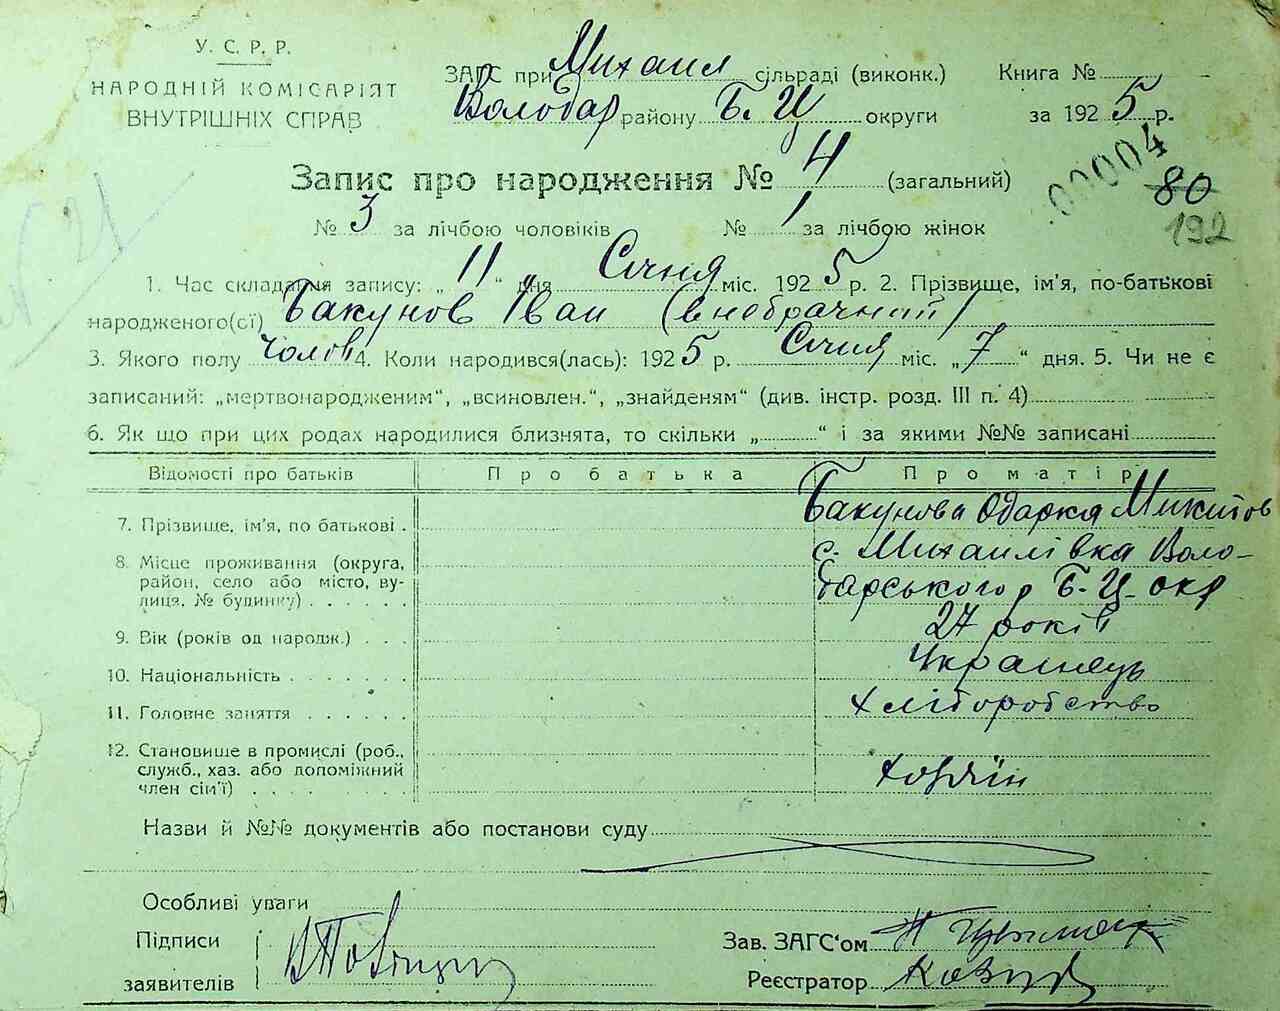 У. С. Р. Р.
НАРОДНІЙ КОМІСАРІЯТ
ВНУТРІШНІХ СПРАВ
ЗАГС при Михаил сільраді (виконк.) Книга №
Володар району Б. Ц округи за 1925 р.
000004
80
192
Запис про народження № 4 (загальний)
№ 3 за лічбою чоловіків № 1 за лічбою жінок
1. Час складання запису: „ 11 “ дня Січня міс. 1925 р. 2. Прізвище, ім'я, по-батькові
народженого(ої) Бакунов Іван (внебрачний)
3. Якого полу чолов 4. Коли народився(лась): 1925 р. Січня міс. „ 7 “ дня. 5. Чи не є
записаний: „мертвонародженим“, „всиновлен.“, „знайденям“ (див. інстр. розд. III п. 4)
6. Як що при цих родах народилися близнята, то скільки „ “ і за якими №№ записані
Відомості про батьків Про батька Про матір
7. Прізвище, ім'я, по батькові . Бакунова Одарка Микитов
8. Місце проживання (округа, район, село або місто, вулиця, № будинку) . . . . . . с. Михаилівка Воло-
барського р Б. Ц. окр
9. Вік (років од народж.) . . . 27 років
10. Національність . . . . . . . Українець
11. Головне заняття . . . . . . хліборобство
12. Становище в промислі (роб., служб., хаз. або допоміжний член сім'ї) . . . . . . . . хозяїн
Назви й №№ документів або постанови суду
Особливі уваги
Підписи
заявителів
Зав. ЗАГС'ом
Реєстратор